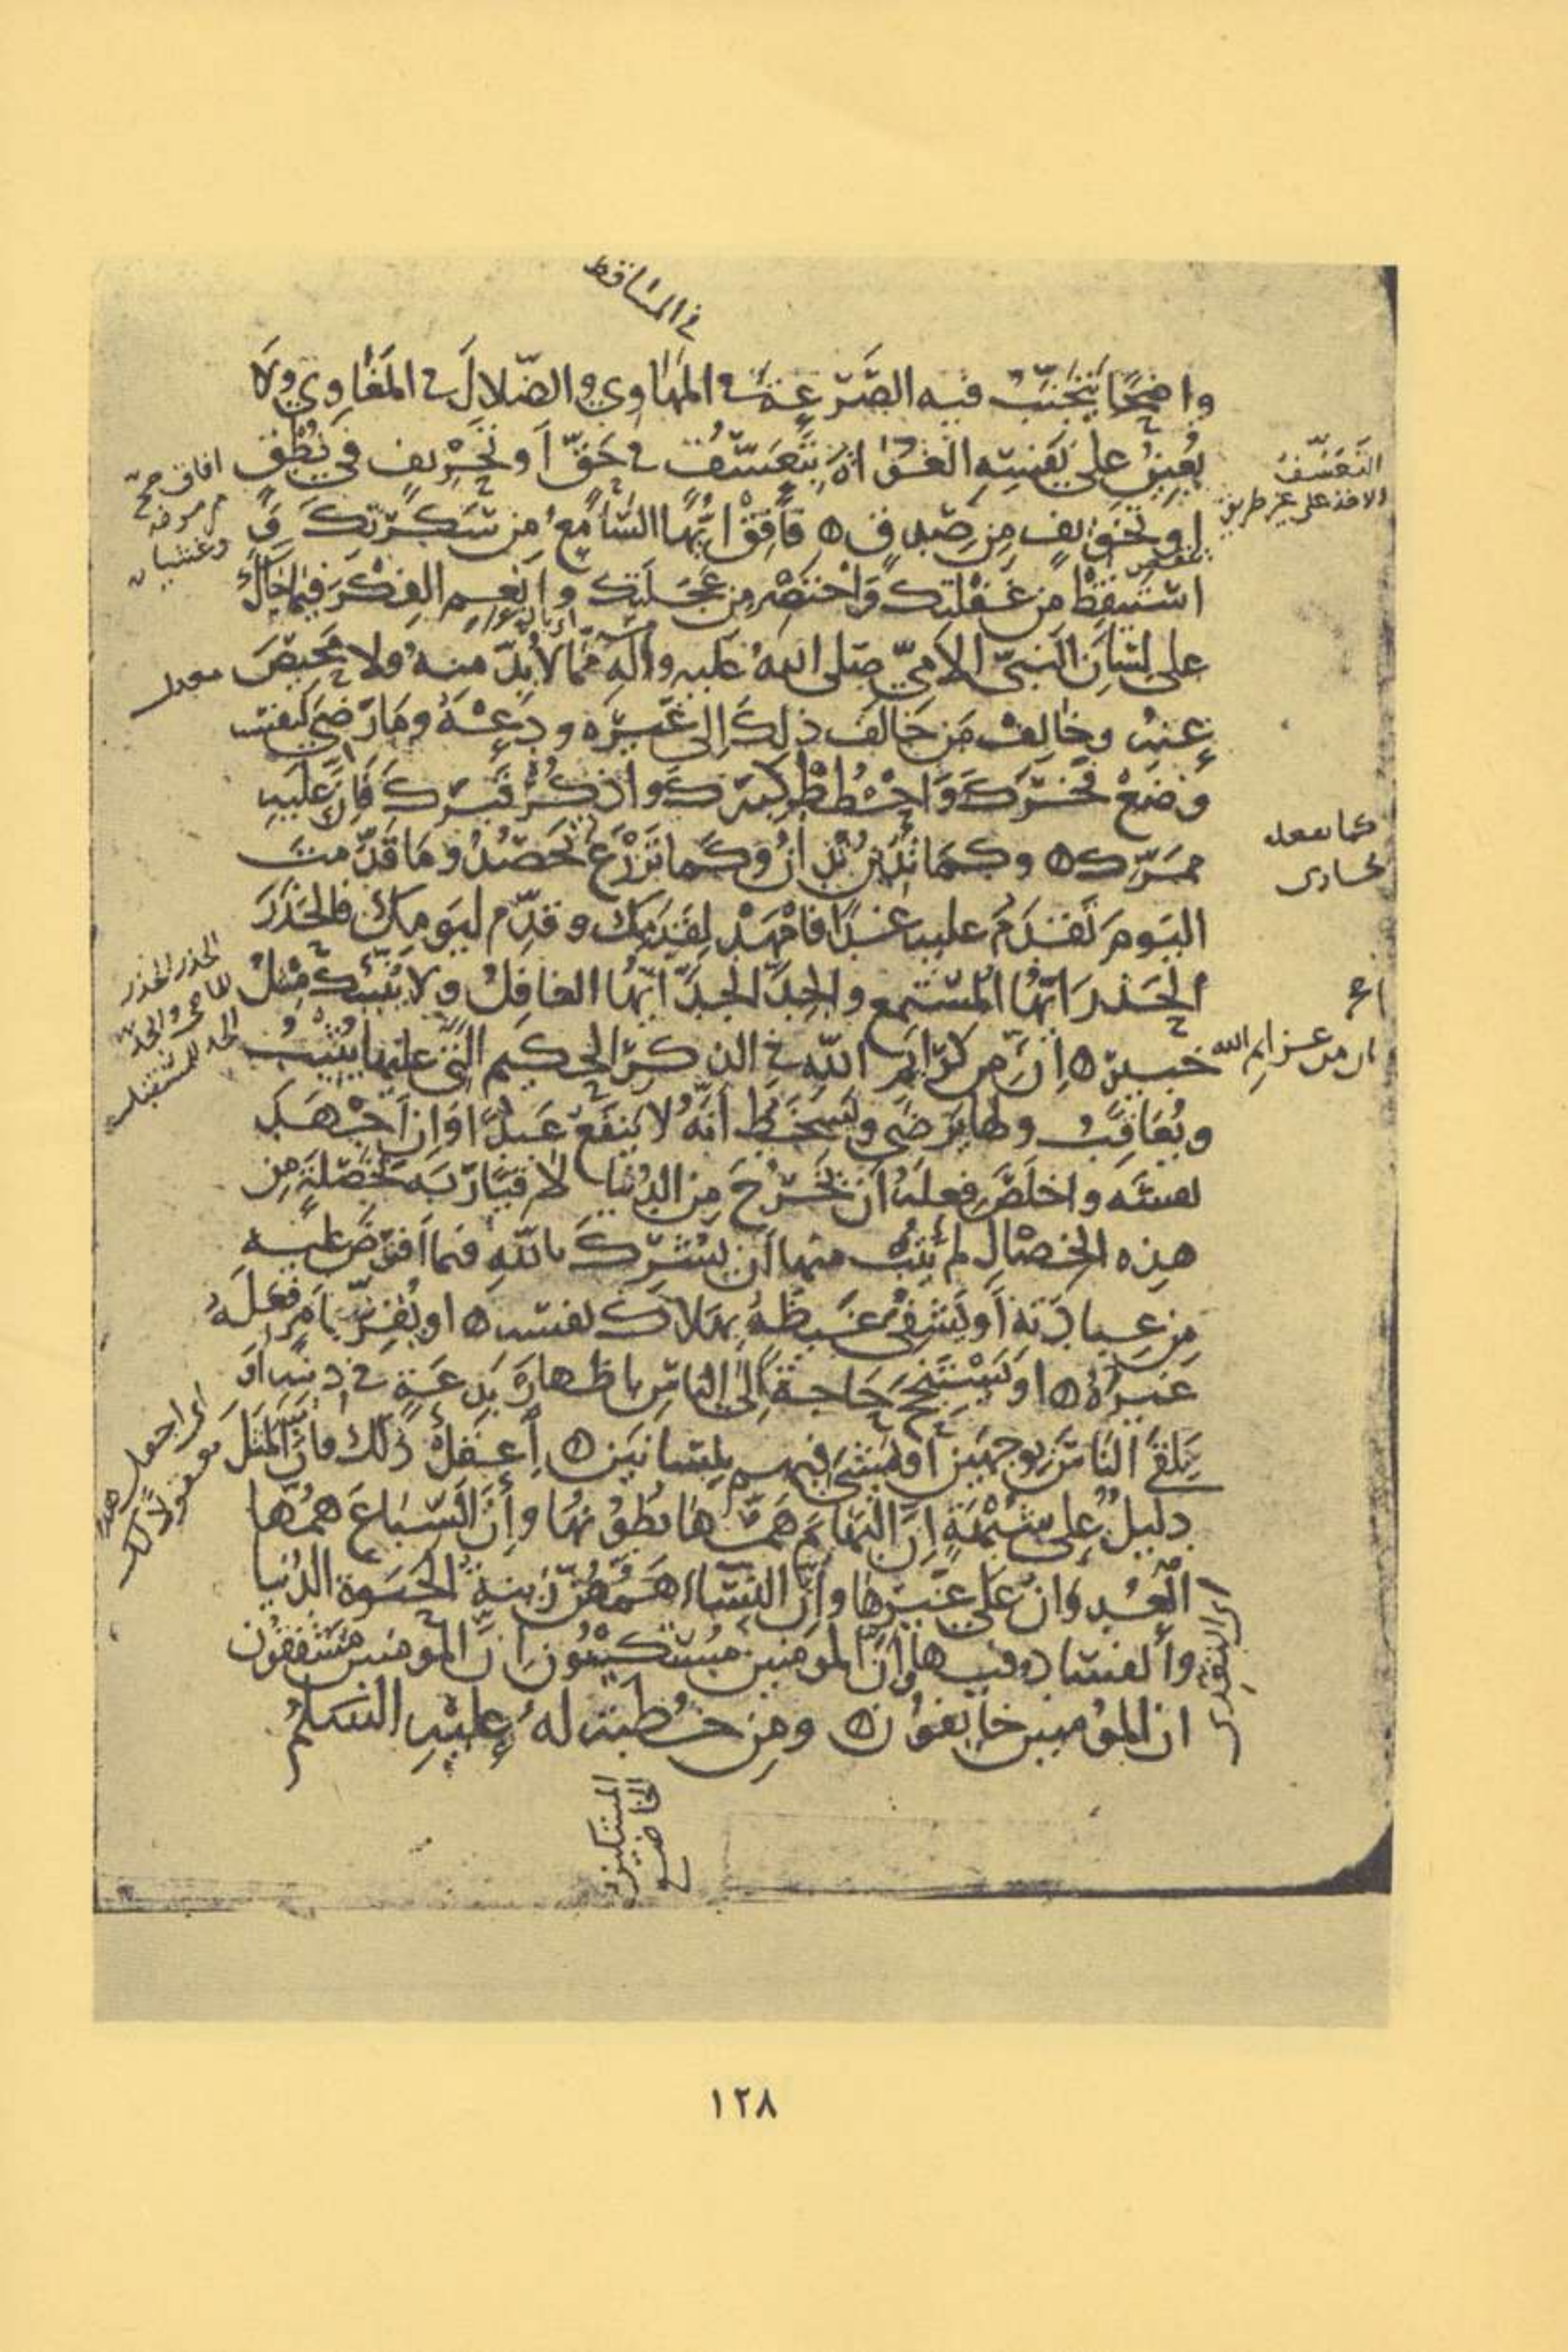 في المساقط
واضحًا يتجنّب فيه الصّرعة في المهاوي والضّلال في المغاوي ولا
يُعين على نفسه الغواة بتعسّف في حقّ أو تحريف في نطق
التعسّف
الاخذ على غير طريق
افاق صحّ
من مرضه
وغشيان
او تخويف من صدق فأفق ايّها السّامع من سكرتك و
استيقظ من غفلتك واختصر من عجلتك وأنعم الفكر فيما جاءك
على لسان النبيّ الاميّ صلى الله عليه وآله ممّا لا بدّ منه ولا محيص
معدل
عنه وخالف من خالف ذلك إلى غيره ودعه وما رضي لنفسه
وضع فخرك واحطط كبرك واذكر قبرك فإنّ عليه
كما تفعل
تجازى
ممرّك وكما تدين تدان وكما تزرع تحصد وما قدّمت
اليوم تقدم عليه غدًا فامهد لقدمك وقدّم ليومك فالحذر
الحذر ايّها المستمع والجدّ الجدّ ايّها الغافل ولا ينبّئك مثل
الحذر الحذر
للماضي والجدّ
الجد للمستقبل
خبير إنّ من عزايم الله في الذكر الحكيم التي عليها يثيب
ان من عزايم الله
ويعاقب ولها يرضى ويسخط أنّه لا ينفع عبدًا وإن أجهد
نفسه واخلص فعله أن يخرج من الدنيا لاقيًا ربّه بخصلة من
هذه الخصال لم يتب منها أن يشرك بالله فيما افترض عليه
من عبادته أو يشفي غيظه بهلاك نفسه او يقرّ بأمر فعله
غيره او يستنجح حاجة إلى الناس باظهار بدعة في دينه أو
يلقى الناس بوجهين أو يمشي فيهم بلسانين اعقل ذلك فان المثل
اي اجعل هذا
معقولاً لك
دليل على شبهه إنّ البهائم همّها بطونها وإنّ السّباع همّها
العدوان على غيرها وإنّ النساء همّهنّ زينة الحيوة الدنيا
والفساد فيها إنّ المومنين مستكينون إنّ المومنين مشفقون
ان المؤمنين خايفون ومن خطبة له عليه السلم
المستكين
الخاضع
١٢٨